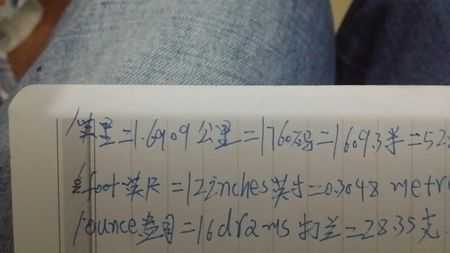 1英里=1.6909公里=1760码=1609.3米=52
1foot英尺=12inches英寸=0.3048 metr
1ounce盎司=16drams打兰=28.35克